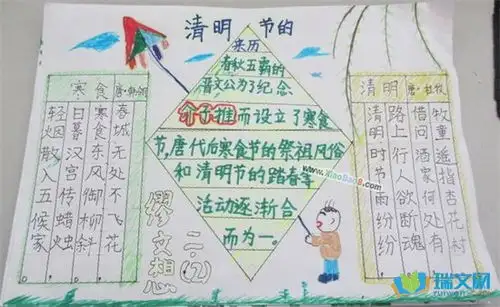 清明节的
来历
春秋五霸的
晋文公为了纪念
介子推而设立了寒食
节,唐代后寒食节的祭祖风俗
和清明节的踏春等
活动逐渐合
而为一。
寒食 唐·韩翃
春城无处不飞花
寒食东风御柳斜
日暮汉宫传蜡烛
轻烟散入五候家
清明 唐·杜牧
清明时节雨纷纷
路上行人欲断魂
借问酒家何处有
牧童遥指杏花村
缪文想
二.(2)
www.XiaoBao8.com
瑞文网